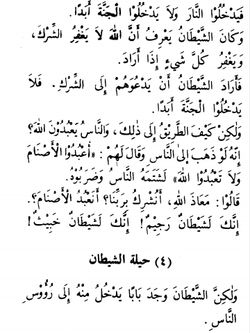 فَيَدْخُلُوا النَّارَ وَلَا يَدْخُلُوا الْجَنَّةَ أَبَدًا.
وَكَانَ الشَّيْطَانُ يَعْرِفُ أَنَّ اللهَ لَا يَغْفِرُ الشِّرْكَ،
وَيَغْفِرُ كُلَّ شَيْءٍ إِذَا أَرَادَ.
فَأَرَادَ الشَّيْطَانُ أَنْ يَدْعُوَهُمْ إِلَى الشِّرْكِ. فَلَا
يَدْخُلُوا الْجَنَّةَ أَبَدًا.
وَلَكِنْ كَيْفَ الطَّرِيْقُ إِلَى ذَلِكَ، وَالنَّاسُ يَعْبُدُوْنَ اللهَ؟
إِنَّهُ لَوْ ذَهَبَ إِلَى النَّاسِ وَقَالَ لَهُمْ: «اُعْبُدُوا الْأَصْنَامَ
وَلَا تَعْبُدُوا اللهَ» لَشَتَمَهُ النَّاسُ وَضَرَبُوْهُ.
قَالُوْا: مَعَاذَ اللهِ، أَنُشْرِكُ بِرَبِّنَا؟ أَنَعْبُدُ الْأَصْنَامَ؟.
إِنَّكَ لَشَيْطَانٌ رَجِيْمٌ! إِنَّكَ لَشَيْطَانٌ خَبِيْثٌ!
(٤) حيلة الشيطان
وَلَكِنَّ الشَّيْطَانَ وَجَدَ بَابًا يَدْخُلُ مِنْهُ إِلَى رُؤُوْسِ
النَّاسِ.